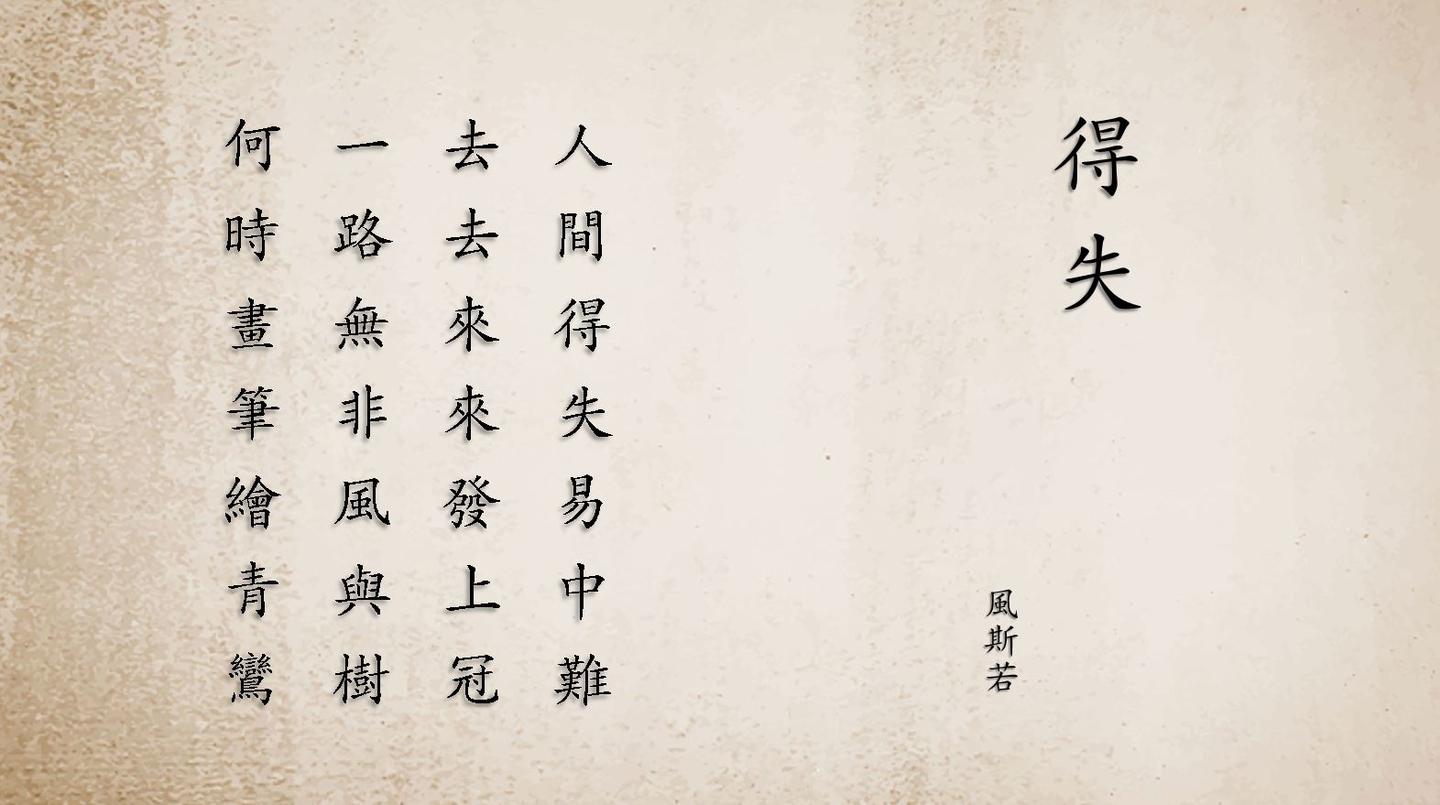 得失
風斯若
人間得失易中難
去去來來發上冠
一路無非風與樹
何時畫筆繪青鸞